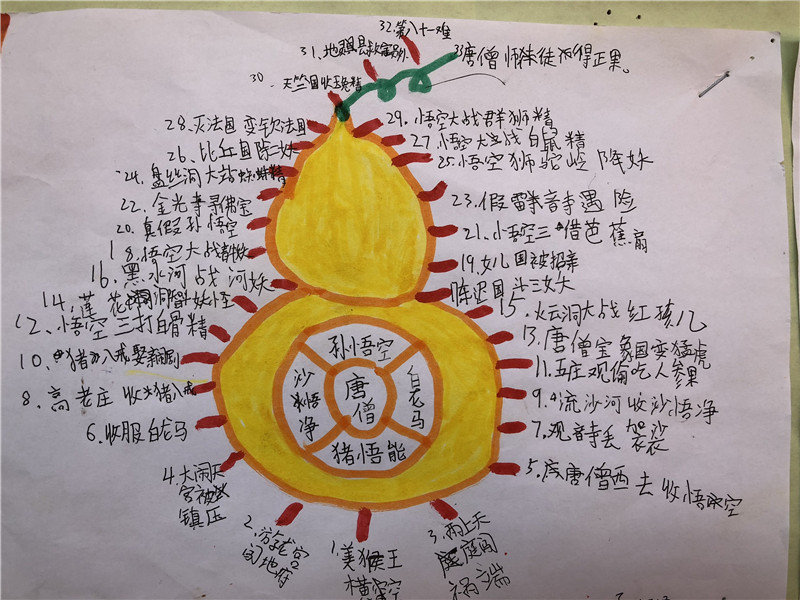 32.第八十一难
31.地
33唐僧师徒得正果。
30.
天竺国收玉兔精
28.灭法国变钦法国
29.悟空大战群狮精
26.比丘国除二妖
27.悟空大战白鼠精
25.悟空狮驼岭降妖
24.盘丝洞大战蜘蛛精
22.金光寺寻佛宝
23.假雷音寺遇险
20.真假孙悟空
21.悟空三借芭蕉扇
18.悟空大战
19.女儿国被招亲
16.黑水河战河妖
车迟国斗三大
14.莲花洞斗妖怪
15.火云洞大战红孩儿
12.悟空三打白骨精
13.唐僧宝象国变猛虎
10.猪八戒
11.五庄观偷吃人参果
8.高老庄收猪八戒
9.流沙河收沙悟净
6.收服白龙马
7.观音寺丢袈裟
5.唐僧西去收悟空
4.大闹天
宫被
镇压
2.游龙宫
闯地府
1.美猴王
横空
3.两上天
庭闯
祸端
孙悟空
沙悟净
唐僧
白龙马
猪悟能